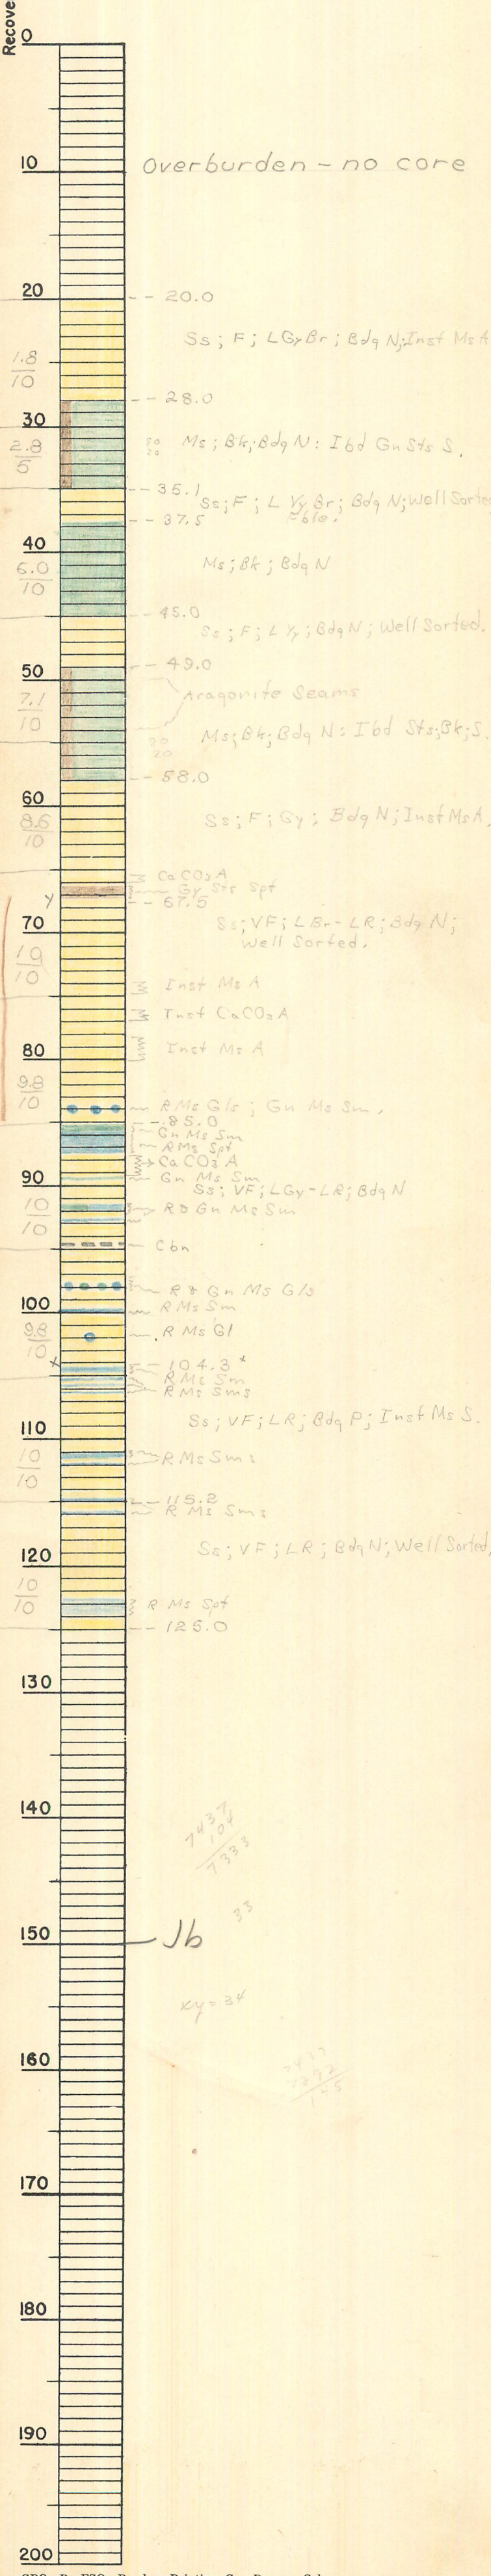 Recove
0
10
Overburden - no core
20
-- 20.0
Ss; F; LGyBr; Bdg N; Inst Ms A
1.8
10
-- 28.0
30
2.8
5
80
20
Ms; Bk; Bdg N: Ibd Gn Sts S.
-- 35.1
Ss; F; L Yy Br; Bdg N; Well Sorte
Fble.
-- 37.5
40
6.0
10
Ms; Bk; Bdg N
-- 45.0
Ss; F; L Yy; Bdg N; Well Sorted.
-- 49.0
50
7.1
10
Aragonite Seams
80
20
Ms; Bk; Bdg N: Ibd Sts; Bk; S.
-- 58.0
60
8.6
10
Ss; F; Gy; Bdg N; Inst Ms A.
CaCO3 A
Gy Sts Spt
y
-- 67.5
70
Ss; VF; LBr-LR; Bdg N;
Well Sorted.
10
10
Inst Ms A
Inst CaCO3 A
80
Inst Ms A
9.8
10
R Ms Gls; Gn Ms Sm.
-- 85.0
Gn Ms Sm
R Ms Spt
CaCO3 A
Gn Ms Sm
90
Ss; VF; LGy-LR; Bdg N
10
10
R & Gn Ms Sm
Cbn
R & Gn Ms Gls
100
R Ms Sm
9.8
10
R Ms Gl
x
-- 104.3 x
R Ms Sm
R Ms Sms
Ss; VF; LR; Bdg P; Inst Ms S.
110
10
10
R Ms Sms
-- 115.2
R Ms Sms
120
Ss; VF; LR; Bdg N; Well Sorted,
10
10
R Ms Spt
-- 125.0
130
140
7437
104
7333
33
150
Jb
xy = 34
160
170
180
190
200